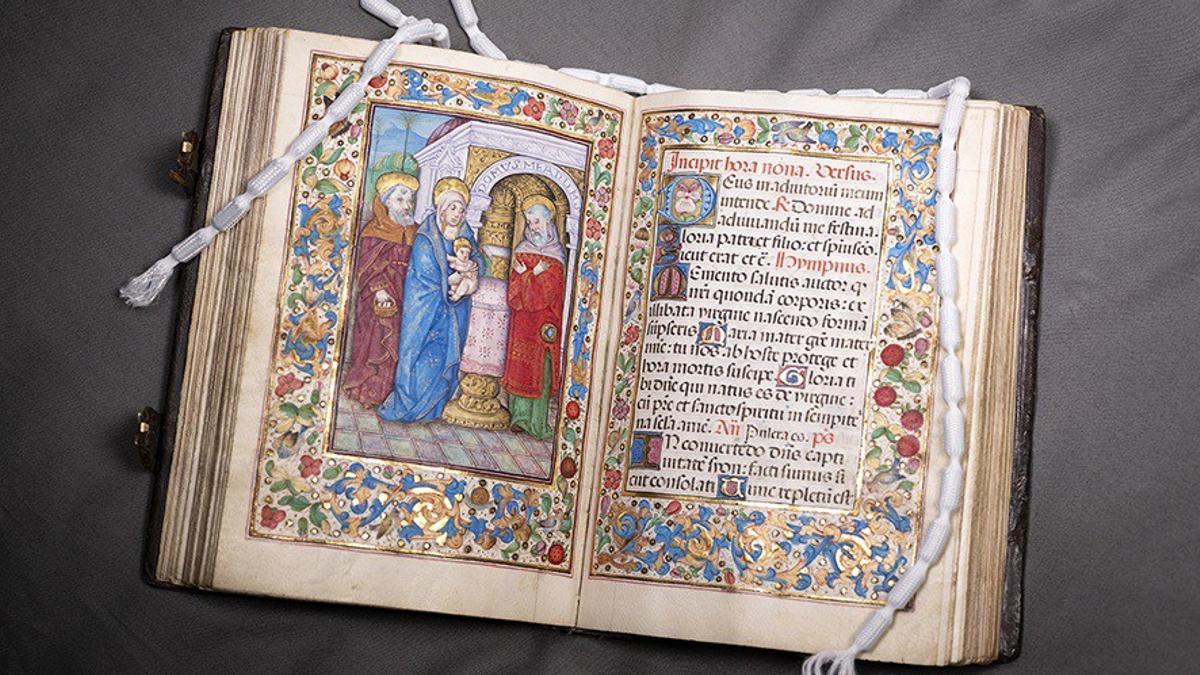 DOMVS MEA
Incipit hora nona. Versus.
Deus in adiutoriū meum
intende. R Domine ad
adiuuandū me festina.
Gloria patri et filio: et spūisco
Sicut erat et c̄. Hympnus.
Memento salutis auctor. q
nr̄i quondā corporis: ex
illibata virgine nascendo formā
sūpseris. Maria mater grē mater
mīe: tu nos ab hoste protege et
hora mortis suscipe. Gloria ti
bi dn̄e qui natus es de virgine:
cū pr̄e et sancto spiritu in sempite
na scla. amē. Añ Pulcra es. ps
IN conuertedo dn̄s capti
uitatē syon: facti sumus si
cut consolati Tunc repletū est